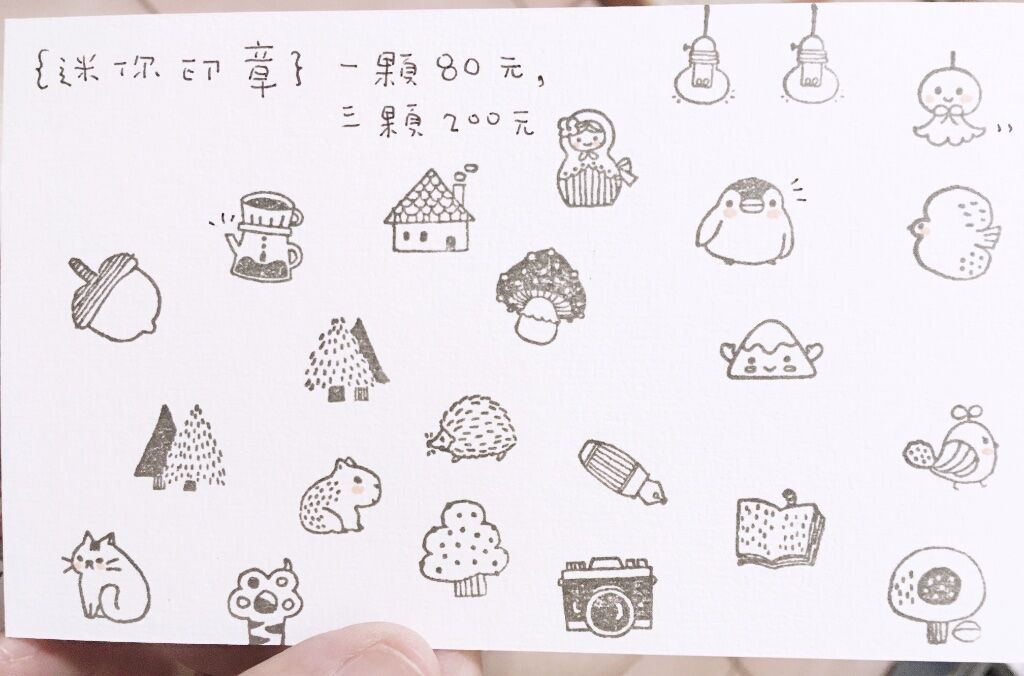 {迷你印章} 一顆 80 元,
三顆 200元